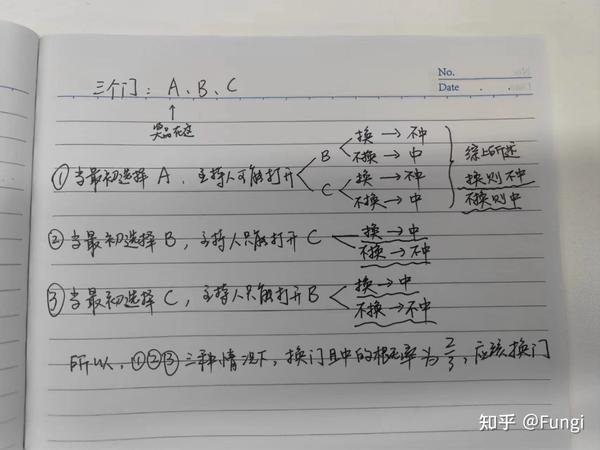 No.
Date
三个门：A、B、C
↑
奖品在这
①当最初选择 A，主持人可能打开
B
换 → 不中
不换 → 中
C
换 → 不中
不换 → 中
综上所述
换则不中
不换则中
②当最初选择 B，主持人只能打开 C
换 → 中
不换 → 不中
③当最初选择 C，主持人只能打开 B
换 → 中
不换 → 不中
所以，①②③三种情况下，换门且中的概率为 2/3，应该换门
知乎 @Fungi